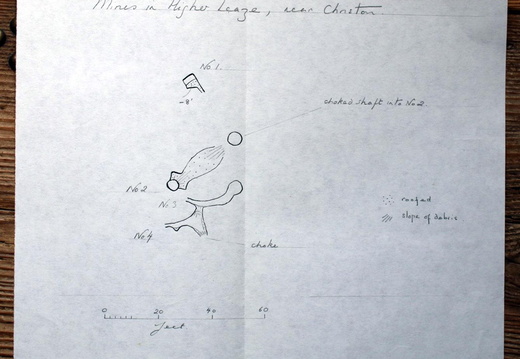 Mines in Higher Leaze, near Christon.
No 1.
-8'
choked shaft into No 2
No 2
No 3
No 4
choke
roofed
slope of debris.
0 20 40 60
feet